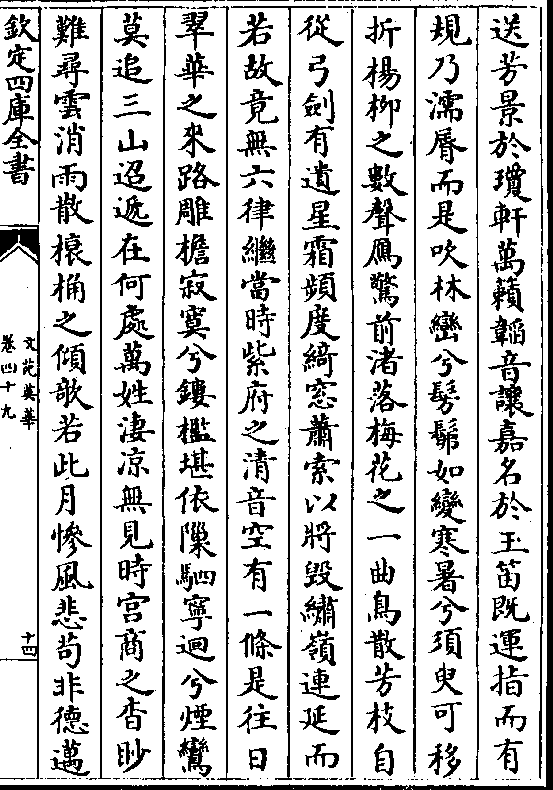 送芳景於瓊軒萬籟韜音讓嘉名於玉笛既運指而有
規乃濡脣而是吹林巒兮髣髴如變寒暑兮須臾可移
折楊柳之數聲鴈驚前渚落梅花之一曲鳥散芳枝自
從弓劍有遺星霜頻度綺窓蕭索以將毀繡嶺連延而
若故竟無六律繼當時紫府之清音空有一條是往日
翠華之來路雕檐寂寞兮鏤檻堪依隟駟寧迴兮煙鸞
莫追三山迢遞在何處萬姓淒凉無見時宫商之杳眇
難尋雲消雨散榱桷之傾欹若此月慘風悲茍非德邁
欽定四庫全書
文苑英華
卷四十九
十四